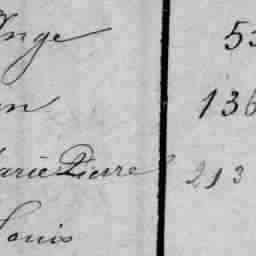 Ange 53
an 136
Marie Pierre 213
Louis